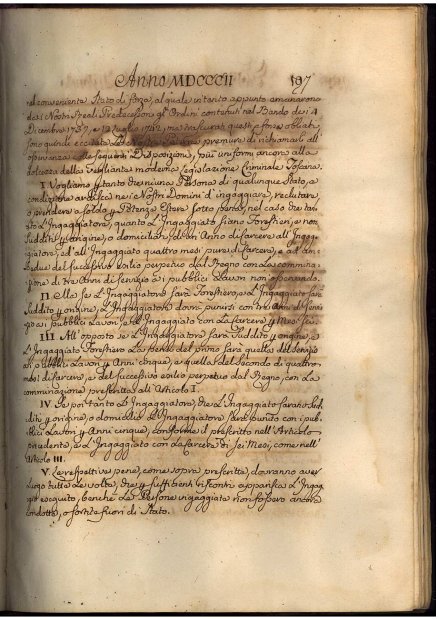 Anno MDCCCII 197
nel conveniente Stato di forza, al quale intanto appunto emanarono
dai Nostri Reali Predecessori gli Ordini contenuti nel Bando de i 4
Dicembre 1737, e 12 Luglio 1742, ma trascurati questi, e forse obliati,
sono quindi eccitate Le Nostre Paterne premure di richiamarli all'
osservanza colle seguenti Disposizioni, più uniformi ancora alla
dolcezza della vegliante moderna Legislazione Criminale Toscana.
I. Vogliamo pertanto che niuna Persona di qualunque Stato, e
condizione ardisca nei Nostri Domini d'ingaggiare, reclutare,
o prendere a soldo per Potenze Estere sotto pena, nel caso che tan-
to L'Ingaggiatore, quanto L'Ingaggiato siano Forestieri, e non
Sudditi per origine, o domicilio, di un Anno di Carcere all'Ingag-
giatore, ed all'Ingaggiato quattro mesi pure di Carcere, e ad am-
bedue del successivo esilio perpetuo dal Regno con La commina-
zione di tre Anni di servizio ai pubblici Lavori non osservando.
II. Ma se L'Ingaggiatore sarà Forestiero, e L'Ingaggiato sarà
Suddito per origine, L'Ingaggiatore dovrà punirsi con tre Anni di servi-
gio ai pubblici Lavori, e L'Ingaggiato con La Carcere per Mesi sei.
III. All'opposto se L'Ingaggiatore sarà Suddito per origine, e
L'Ingaggiato Forestiero La pena del primo sarà quella del servizio
ai pubblici Lavori per Anni cinque, e quella del secondo di quattro
mesi di Carcere, e del successivo esilio perpetuo dal Regno, con La
comminazione prescritta all'Articolo I.
IV. Se poi tanto L'Ingaggiatore, che L'Ingaggiato saranno Sud-
diti per origine, o domicilio L'Ingaggiatore sarà punito con i pub-
blici Lavori per Anni cinque, conforme il prescritto nell'Articolo
precedente, e L'Ingaggiato con La Carcere di sei Mesi, come nell'
Articolo III.
V. Le respettive pene, come sopra prescritte, dovranno aver
Luogo tutte Le volte, che per sufficienti riscontri apparisca L'Ingag-
gio eseguito, benche Le Persone ingaggiate non fossero ancora
condotte, o sortite fuori di Stato.